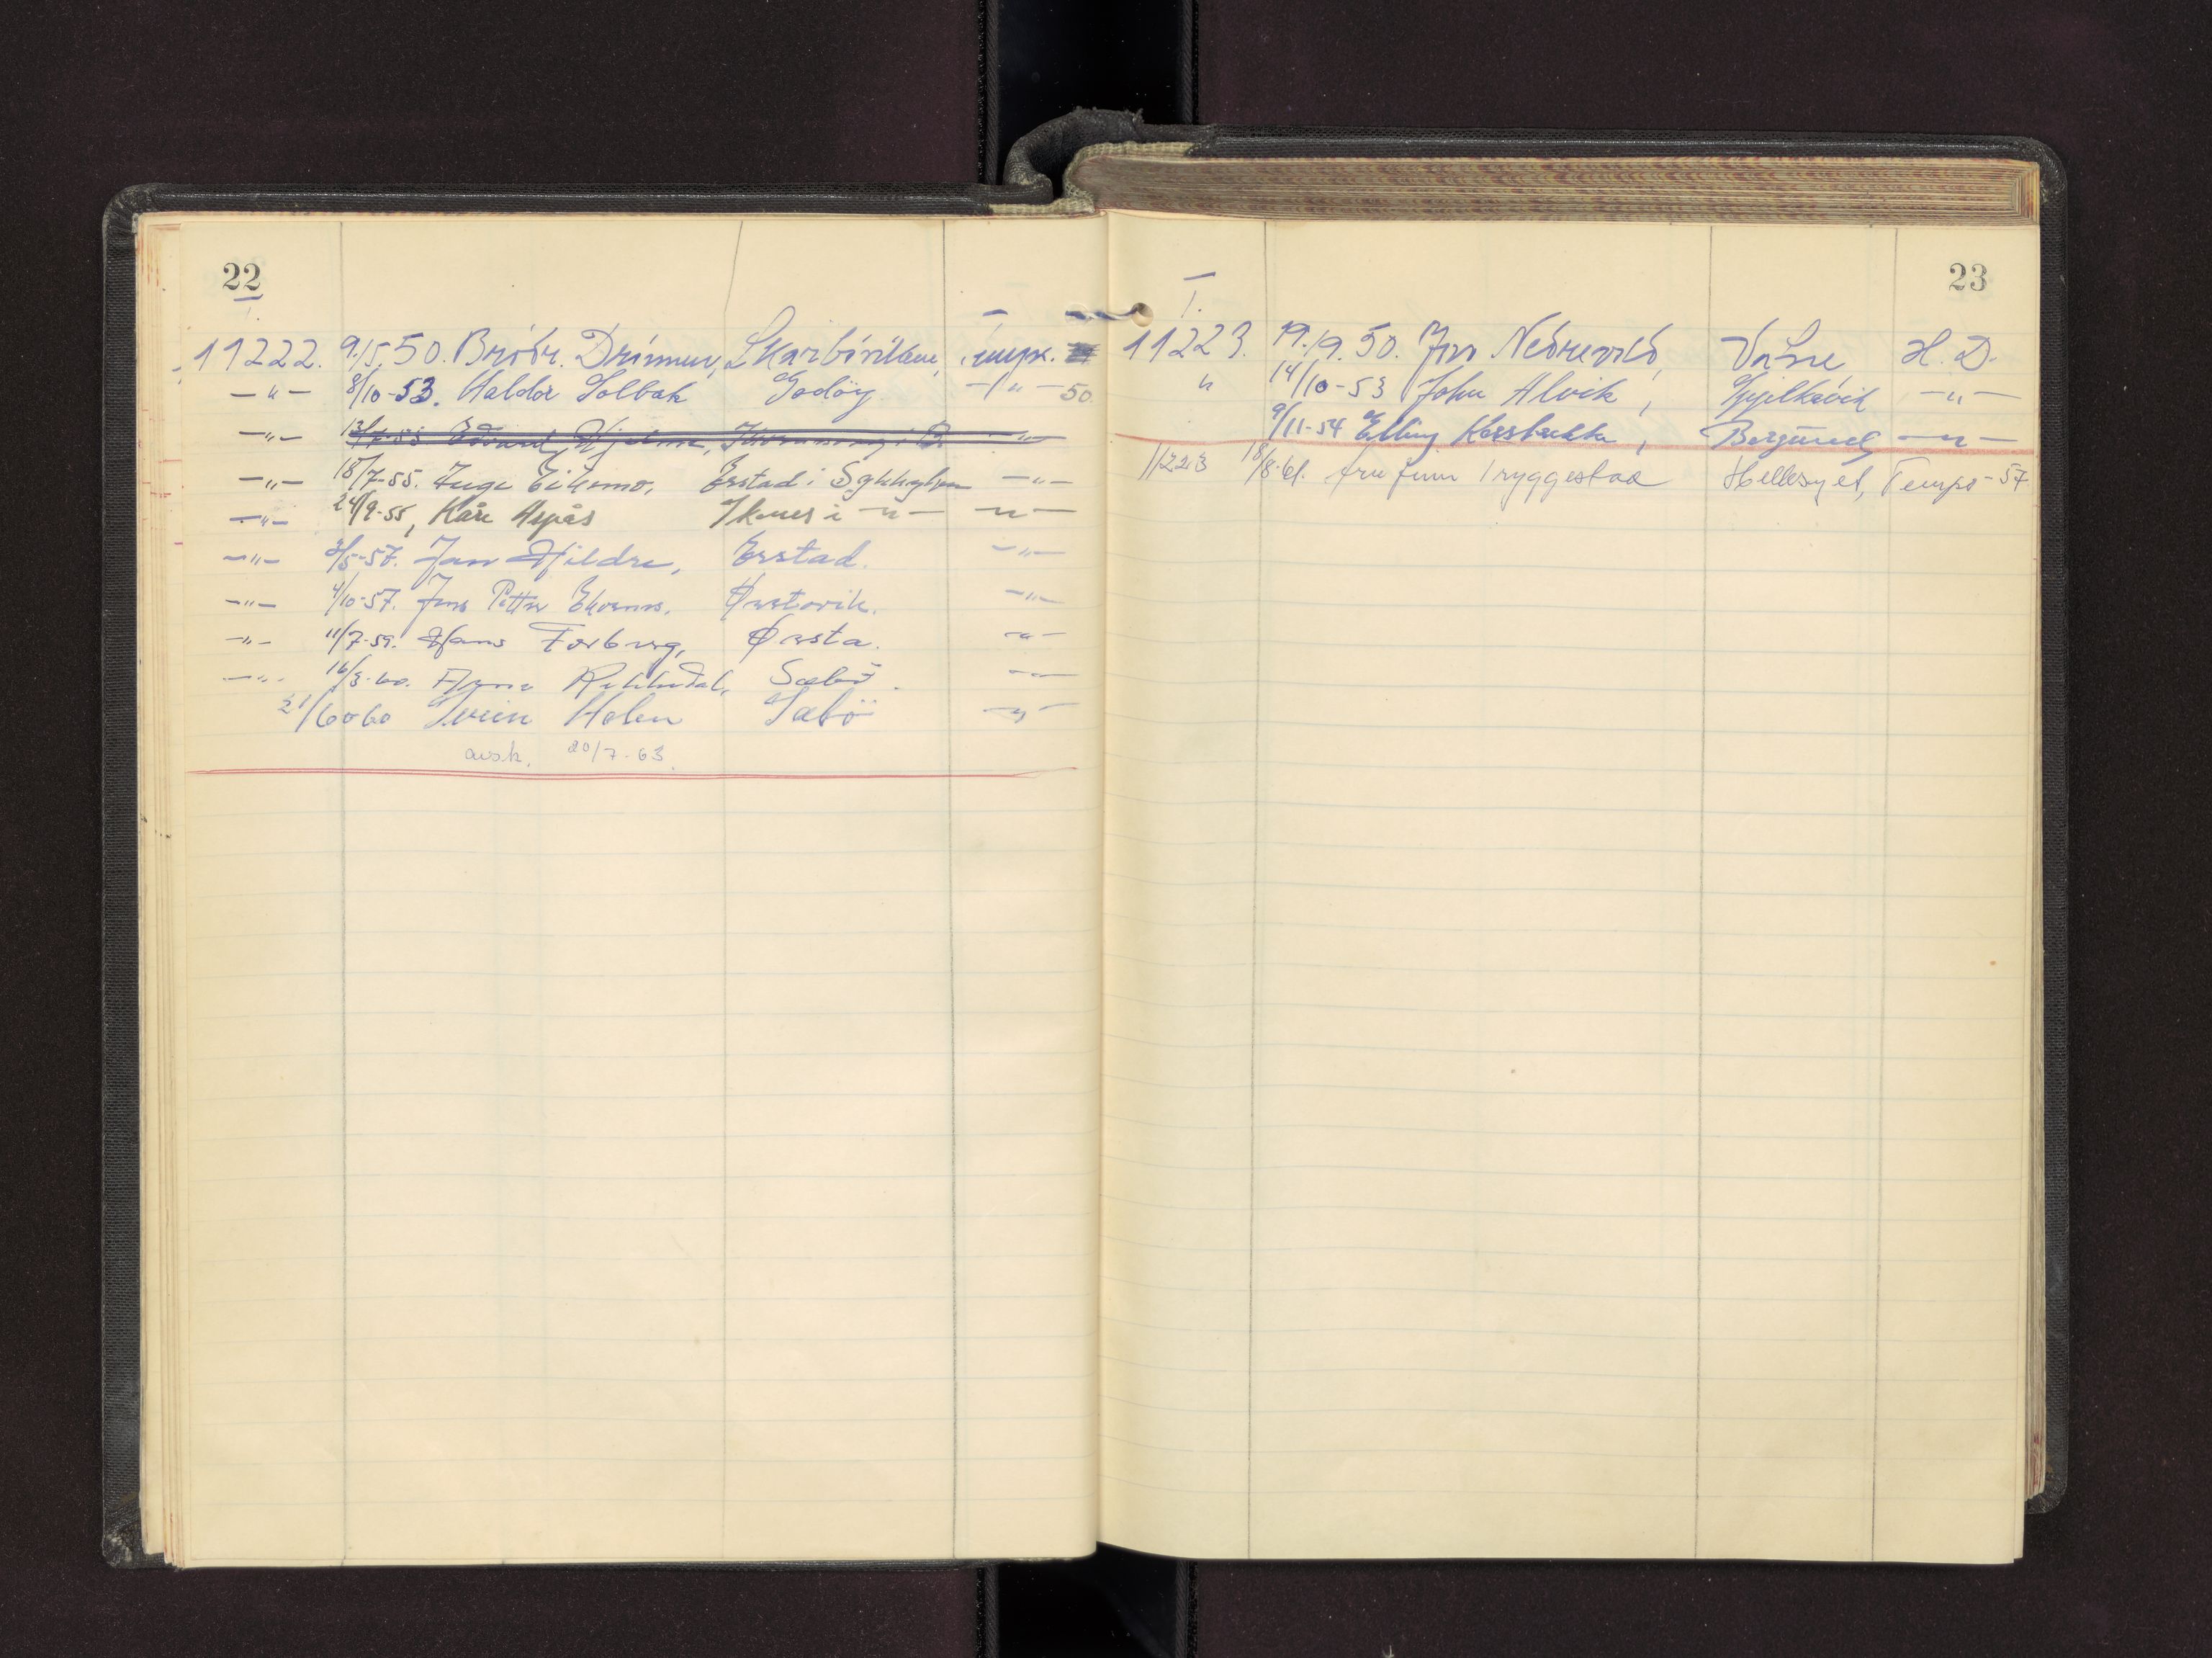 22
I.
11222. 9./5. 50. Brødr. Drønnen, Skarbøvikane, Temps.
-"- 8/10-53. Haldor Solbak Godöy -"- 50
-"- 13/7-55 Edvard Hjelme, -"-
-"- 18/7-55. Inge Eikrmo, Ørstad i Sykkylven -"-
-"- 24/9-55, Kåre Aspås Ikornes i -"- -"-
-"- 3/5-57. Jan Hildre, Ørstad. -"-
-"- 4/10-57. Jens Petter Ekornes. Ørstavik. -"-
-"- 11/7-59. Hans Forberg, Ørsta. -"-
-"- 16/3-60. Sæbö. -"-
21/6 60 Svein Holen Sæbö -"-
avsk. 20/7-63.
23
I.
11223. 19./9. 50. Jon Nedrevold, Vatne, H. D.
" 14/10-53 John Alvik, -"-
9/11-54 Elling Borgund -"-
11223 18/8-61. Tryggestad Hellesylt, Tempo-57